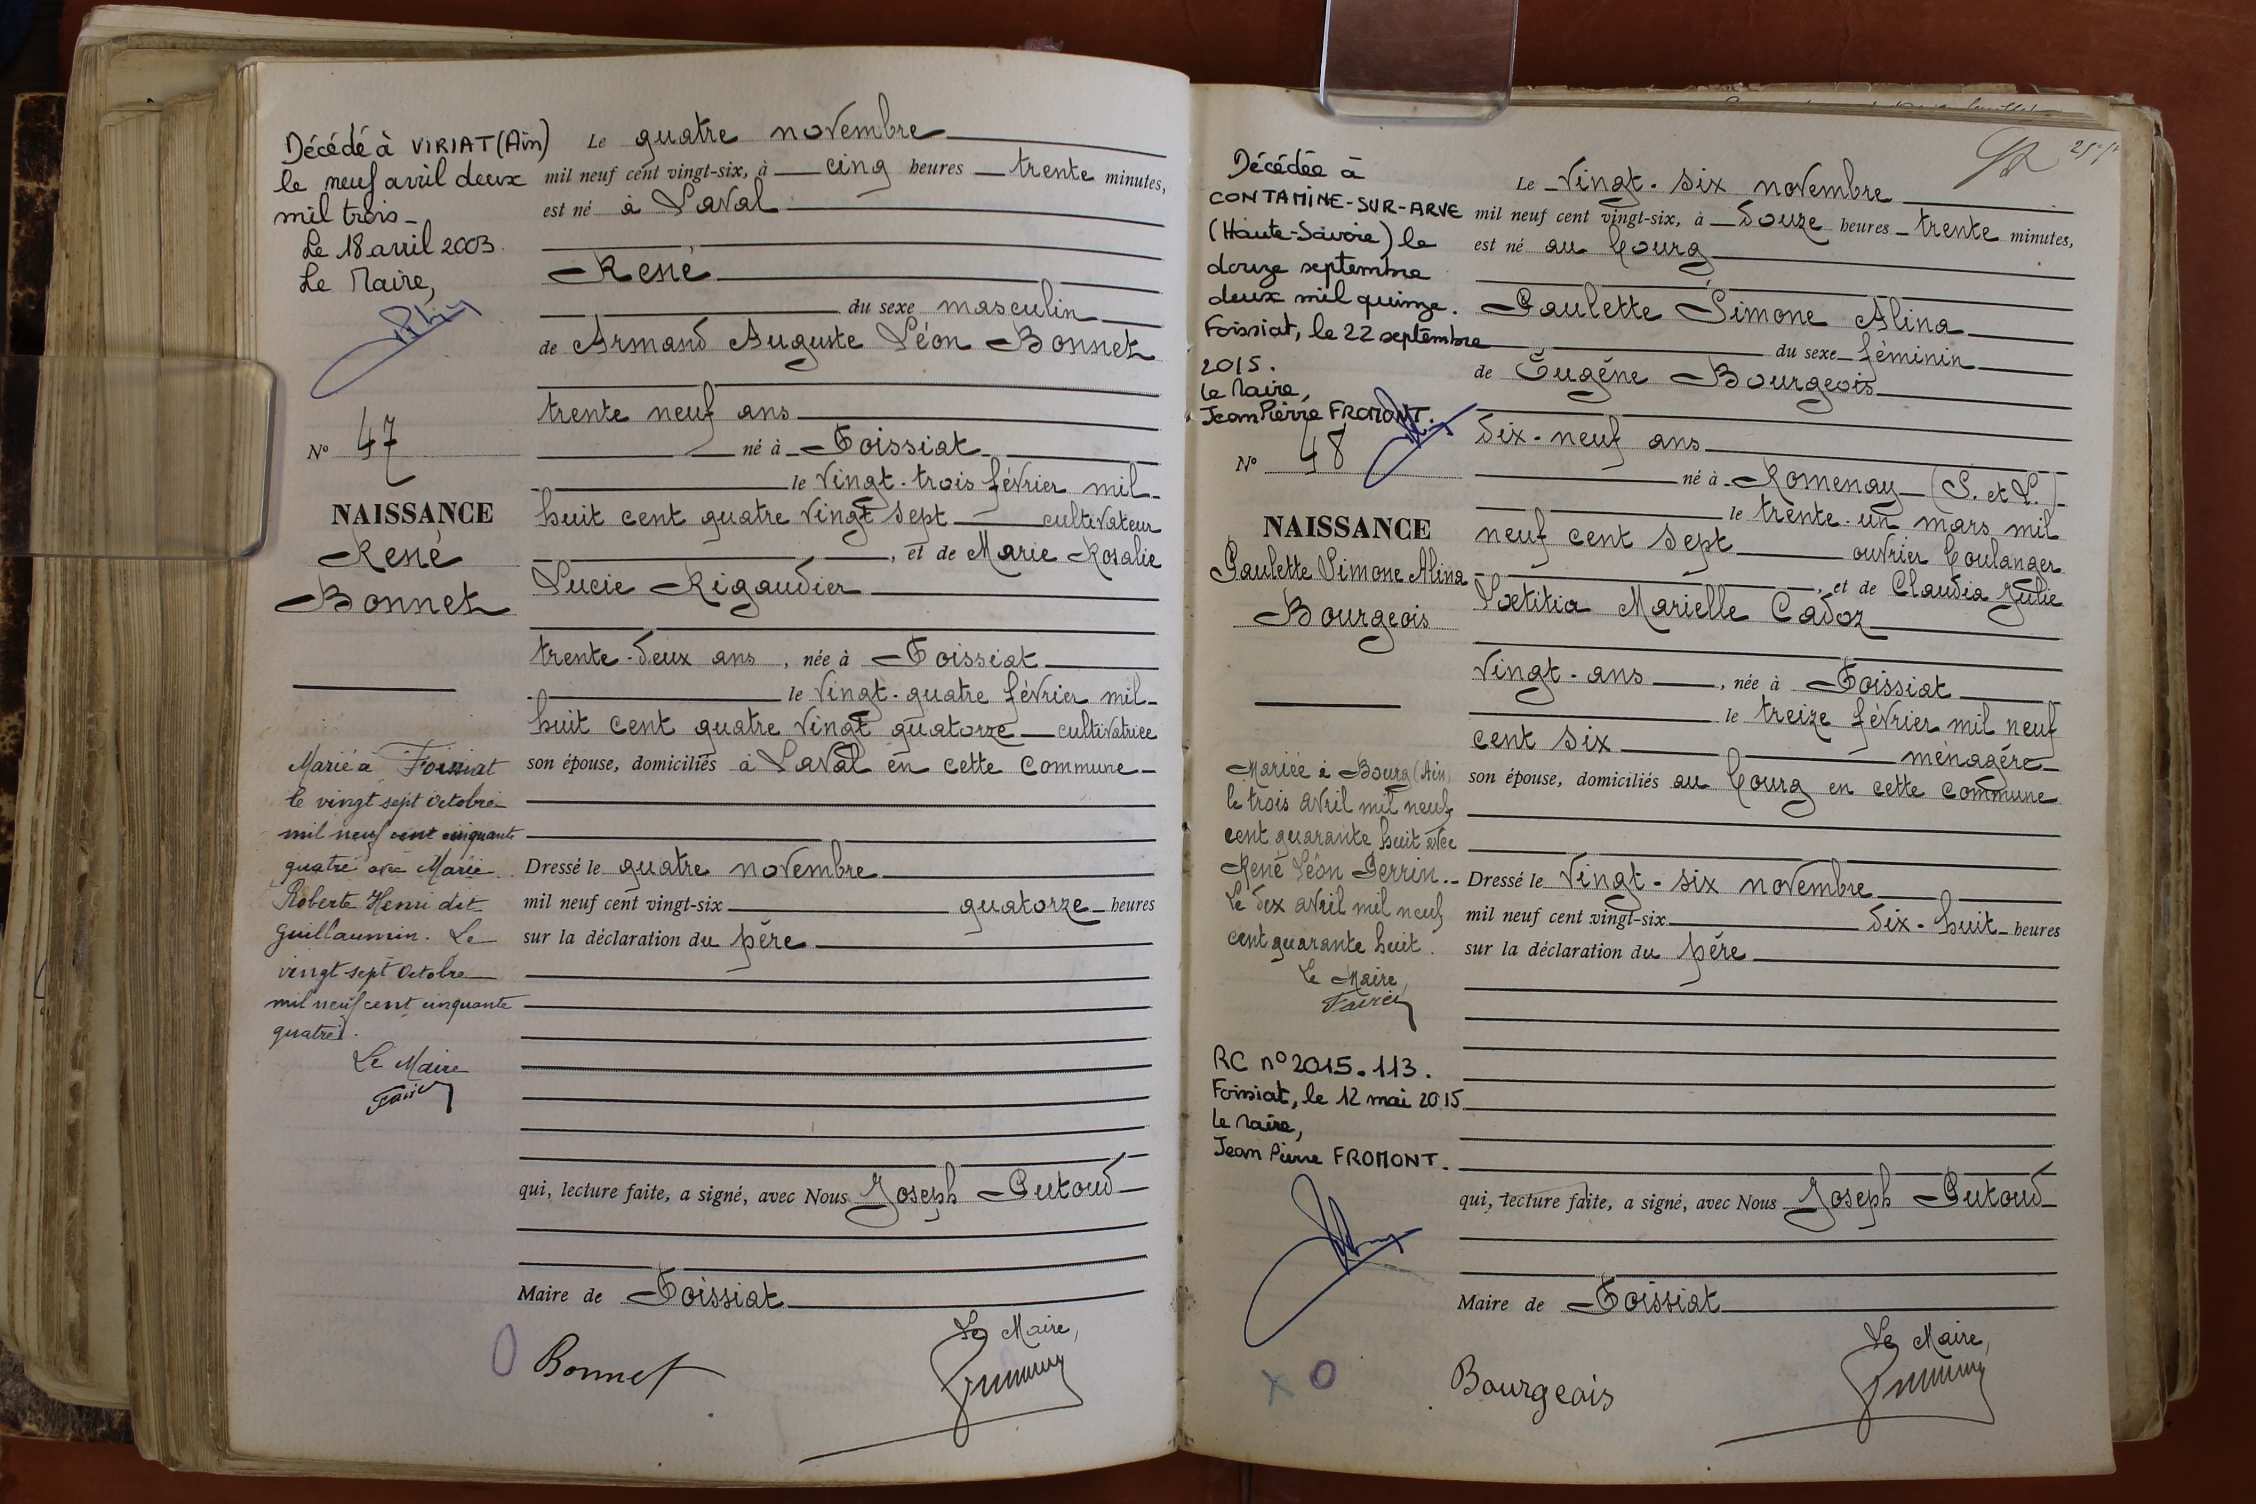 Décédé à VIRIAT (Ain)
le neuf avril deux
mil trois
Le 18 avril 2003
Le Maire,
N° 47
NAISSANCE
René
Bonnet
Marié à Foissiat
le vingt sept octobre
mil neuf cent cinquante
quatre avec Marie
Roberte Henri dit
Guillaumin. Le
vingt sept octobre
mil neuf cent cinquante
quatre.
Le Maire
Le quatre novembre
mil neuf cent vingt-six, à cinq heures trente minutes,
est né à Laval
René
du sexe masculin
de Armand Auguste Léon Bonnet
trente neuf ans
né à Foissiat
le vingt-trois février mil
huit cent quatre vingt sept cultivateur
, et de Marie Rosalie
Lucie Rigaudier
trente-deux ans , née à Foissiat
le vingt-quatre février mil
huit cent quatre vingt quatorze cultivatrice
son épouse, domiciliés à Laval en cette commune
Dressé le quatre novembre
mil neuf cent vingt-six quatorze heures
sur la déclaration du père
qui, lecture faite, a signé, avec Nous Joseph Putoud
Maire de Foissiat
Le Maire,
Bonnet
25
Décédée à
CONTAMINE-SUR-ARVE
(Haute-Savoie) le
douze septembre
deux mil quinze.
Foissiat, le 22 septembre
2015.
Le Maire,
Jean Pierre FROMONT.
N° 48
NAISSANCE
Paulette Simone Alina
Bourgeois
Mariée à Bourg (Ain)
le trois avril mil neuf
cent quarante huit avec
René Léon Perrin.
Le dix avril mil neuf
cent quarante huit.
Le Maire,
RC n° 2015.113.
Foissiat, le 12 mai 2015
Le Maire,
Jean Pierre FROMONT.
Le vingt-six novembre
mil neuf cent vingt-six, à douze heures trente minutes,
est né au bourg
Paulette Simone Alina
du sexe féminin
de Eugène Bourgeois
dix-neuf ans
né à Romenay (S. et L.)
le trente-un mars mil
neuf cent sept ouvrier boulanger
, et de Claudia Julie
Lœtitia Marielle Cadoz
vingt-ans , née à Foissiat
le treize février mil neuf
cent six ménagère
son épouse, domiciliés au bourg en cette commune
Dressé le vingt-six novembre
mil neuf cent vingt-six dix-huit heures
sur la déclaration du père
qui, lecture faite, a signé, avec Nous Joseph Putoud
Maire de Foissiat
Le Maire,
Bourgeois